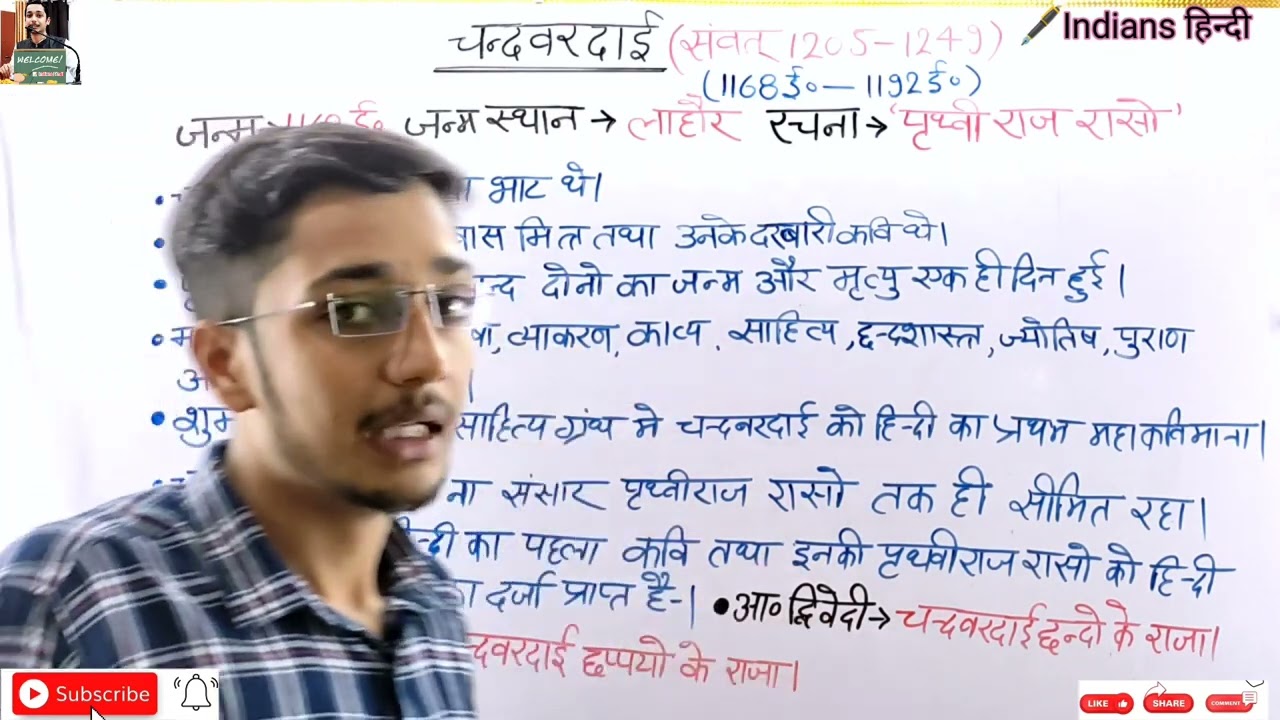 WELCOME!
चन्दवरदाई (संवत् 1205-1249)
Indians हिन्दी
(1168ई० — 1192ई०)
जन्म ई० जन्म स्थान → लाहौर रचना → 'पृथ्वी राज रासो'
भाट थे।
मित्र तथा उनके दरबारी कवि थे।
दोनो का जन्म और मृत्यु एक ही दिन हुई।
व्याकरण, काव्य, साहित्य, छन्दशास्त्र, ज्योतिष, पुराण
साहित्य ग्रंथ मे चन्दवरदाई को हिन्दी का प्रथम महाकवि माना।
संसार पृथ्वीराज रासो तक ही सीमित रहा।
का पहला कवि तथा इनकी पृथ्वीराज रासो को हिन्दी
दर्जा प्राप्त है-। • आ० द्विवेदी → चन्दवरदाई छन्दो के राजा।
छप्पयो के राजा।
Subscribe
LIKE SHARE COMMENT